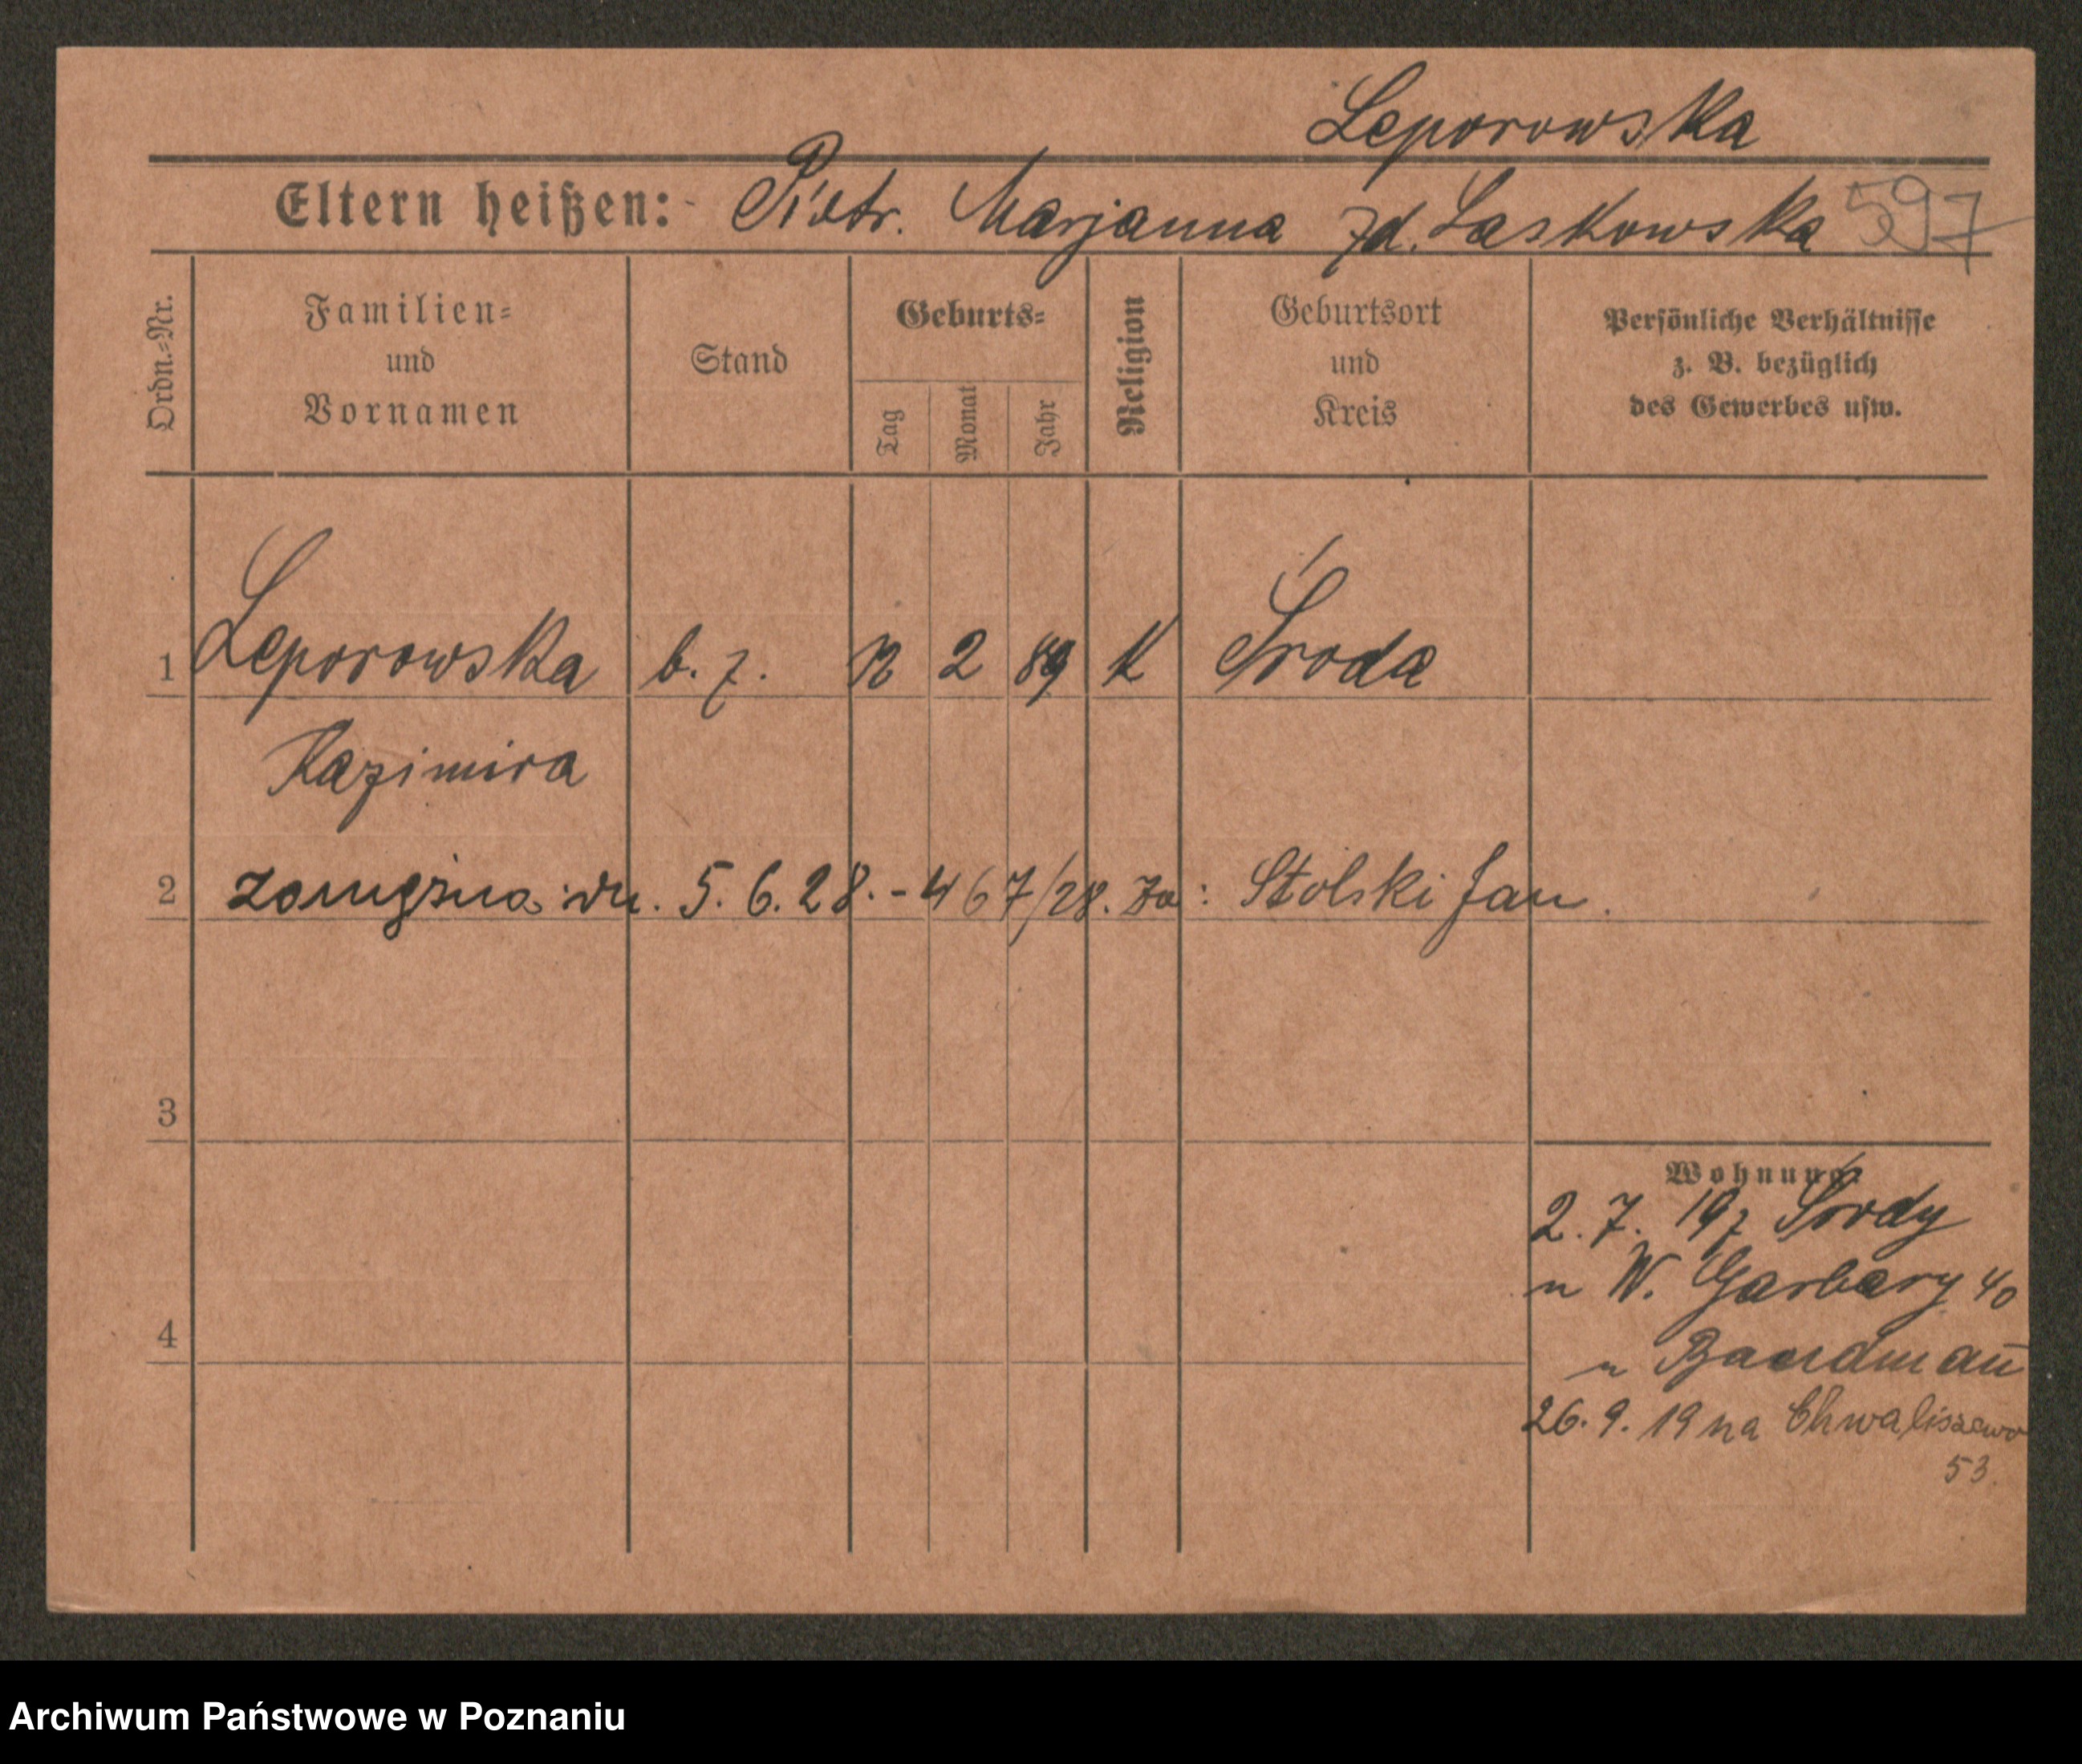 Leporowska
Eltern heißen: Piotr. Marjanna zd. Laskowska 597
Ordn.-Nr.
Familien-
und
Vornamen
Stand
Geburts-
Tag
Monat
Jahr
Religion
Geburtsort
und
Kreis
Persönliche Verhältnisse
z. B. bezüglich
des Gewerbes usw.
1 Leporowska b. z. 2 89 K Środa
Kazimira
2 zamężna: dn. 5. 6. 28. - 467/28. za: Stolski Jan.
3
Wohnung.
2. 7. 19 z Środy
n W. Garbary 40
4
n
26. 9. 19 na Chwaliszewo
53.
Archiwum Państwowe w Poznaniu